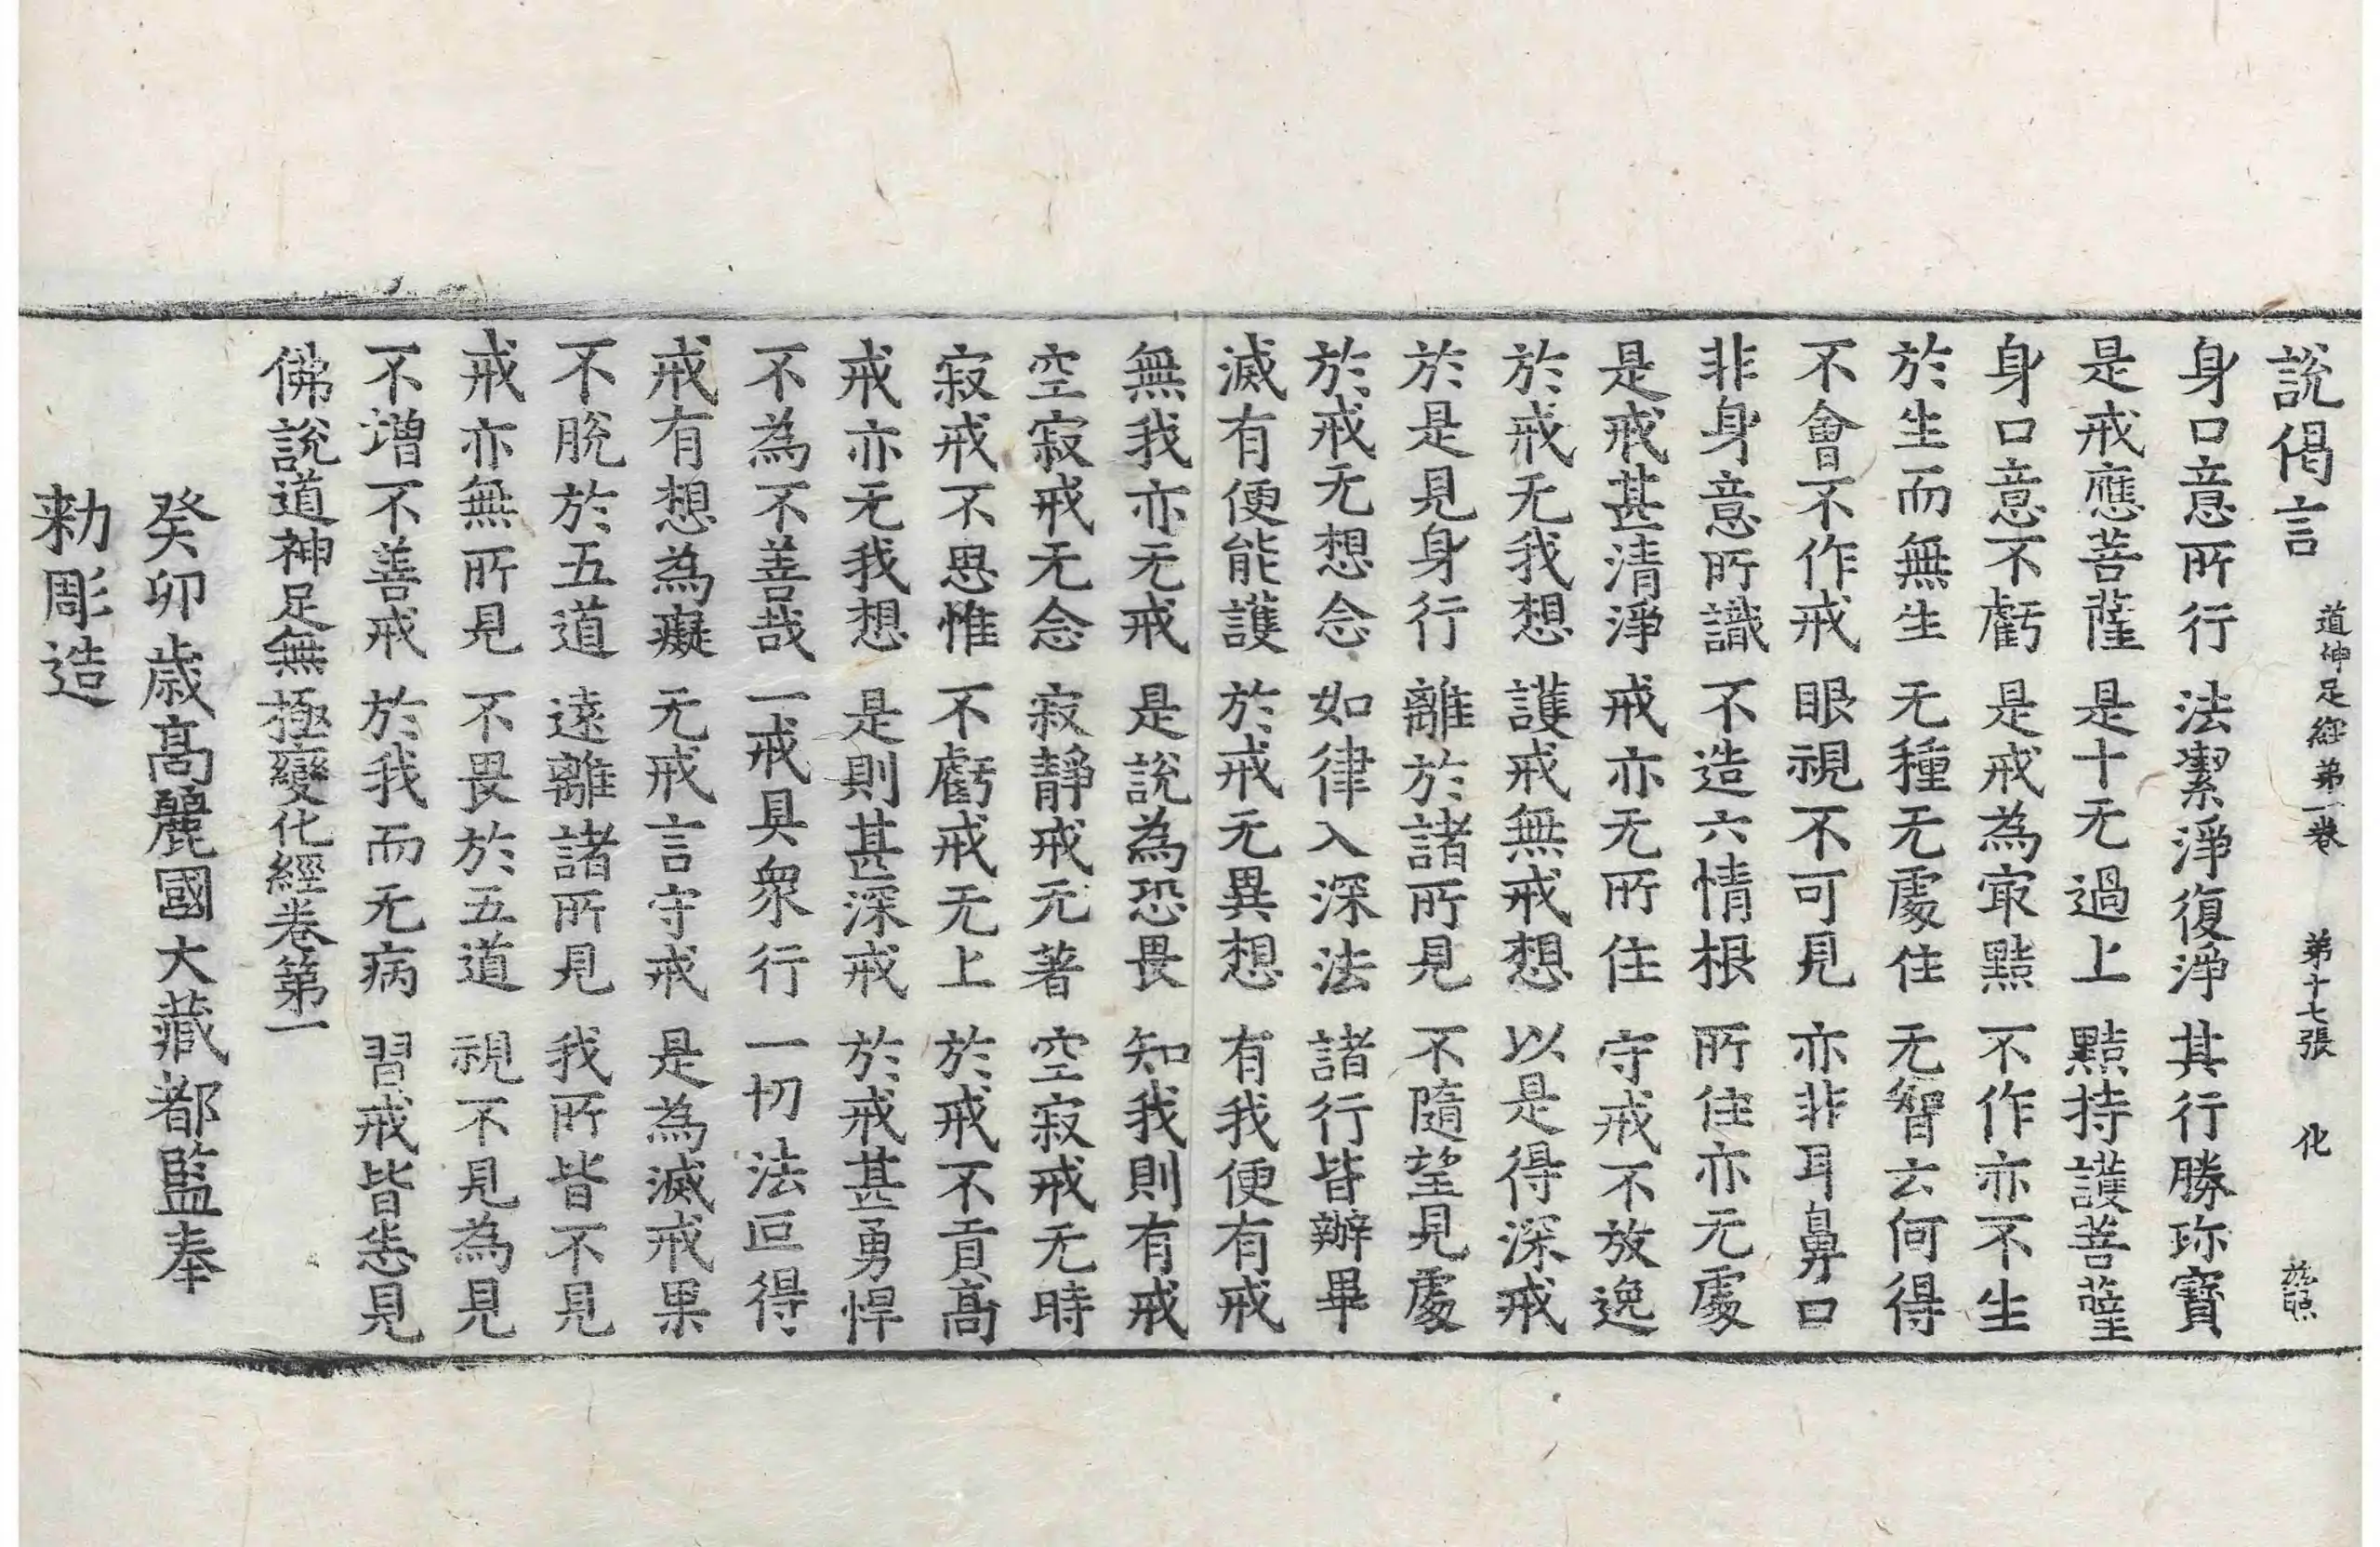 道神足經第一卷 第十七張 化
說偈言
身口意所行 法潔淨復淨 其行勝珎寶
是戒應菩薩 是十无過上 黠持護菩薩
身口意不虧 是戒為㝡黠 不作亦不生
於生而無生 无種无處住 无智云何得
不會不作戒 眼視不可見 亦非耳鼻口
非身意所識 不造六情根 所住亦无處
是戒甚清淨 戒亦无所住 守戒不放逸
於戒无我想 護戒無戒想 以是得深戒
於是見身行 離於諸所見 不隨望見處
於戒无想念 如律入深法 諸行皆辦畢
滅有便能護 於戒无異想 有我便有戒
無我亦无戒 是說為恐畏 知我則有戒
空寂戒无念 寂靜戒无著 空寂戒无時
寂戒不思惟 不虧戒无上 於戒不貢高
戒亦无我想 是則甚深戒 於戒甚勇悍
不為不善哉 一戒具衆行 一切法叵得
戒有想為癡 无戒言守戒 是為滅戒果
不脫於五道 遠離諸所見 我所皆不見
戒亦無所見 不畏於五道 視不見為見
不增不善戒 於我而无病 習戒皆悉見
佛說道神足無極變化經卷第一
癸卯歲高麗國大藏都監奉
勑彫造